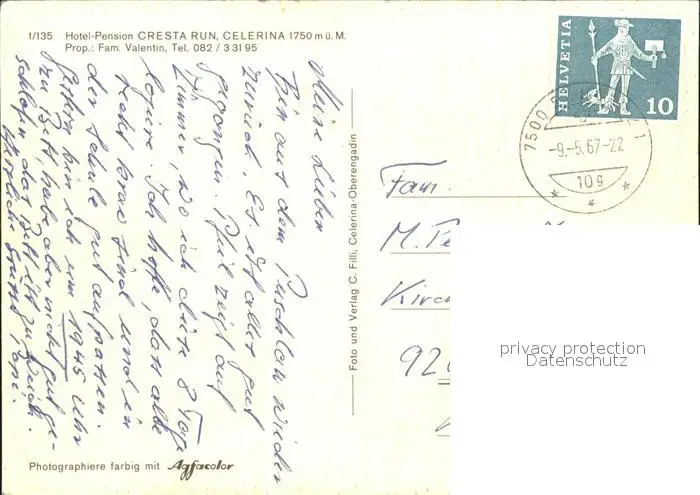 1/135 Hotel-Pension CRESTA RUN, CELERINA 1750 m ü. M.
Prop.: Fam. Valentin, Tel. 082 / 3 31 95
Meine Lieben
Bin aus dem Puschlav wieder
zurück. Es ist alles gut
gegangen. Pfeil zeigt auf
Zimmer, wo ich die 8 Tage
logiere. Ich hoffe, dass alle
recht brav sind und in
der Schule gut aufpassen.
Gestern bin ich um 1945 Uhr
zu Bett, habe aber nicht gut ge-
schlafen, das Bett ist zu weich.
Herzliche Grüsse
Foto und Verlag C. Filli, Celerina-Oberengadin
Photographiere farbig mit Agfacolor
HELVETIA
10
7500
-9.-5.67-22
109
Fam.
M.
Kirch
920
privacy protection
Datenschutz